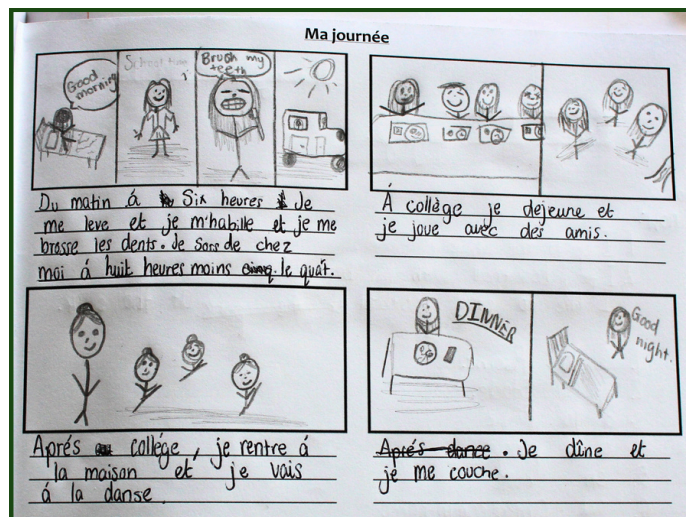 Ma journée
Good
morning
School time
Brush my
teeth
Du matin á Six heures Je
me leve et je m'habille et je me
brosse les dents. Je Sors de chez
moi á huit heures moins le quát.
Á collège je dejeune et
je joue avec des amis.
Aprés collége, je rentre á
la maison et je vais
á la danse.
DINNER
Good
night.
Aprés dance. Je dîne et
je me couche.